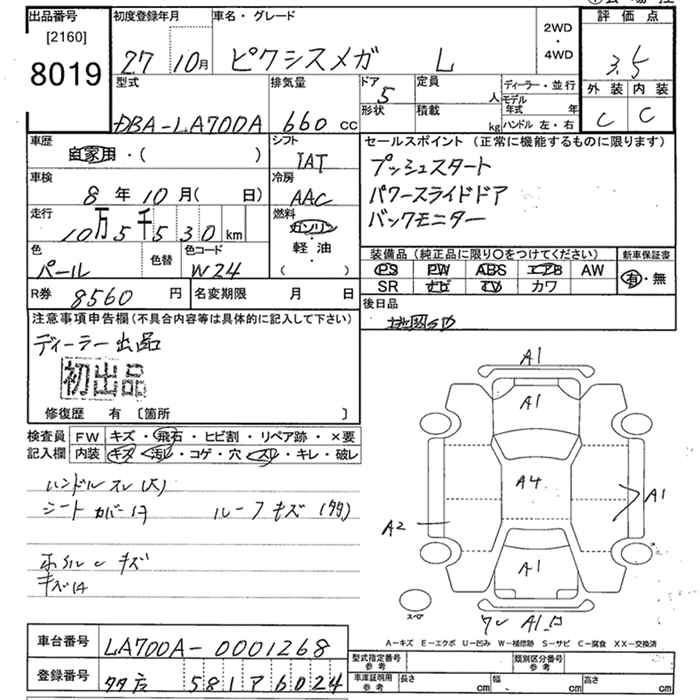 出品番号 初度登録年月 車名・グレード 2WD・4WD 評価点
[2160]
8019 27 10月 ピクシスメガ L 3.5
型式 排気量 ドア 定員 ディーラー・並行 外装 内装
DBA-LA700A 660 cc 5 人 モデル年式 年 C C
形状 積載 kg ハンドル 左・右
車歴 自家用・( ) シフト IAT セールスポイント (正常に機能するものに限ります)
プッシュスタート
車検 8年10月( 日) 冷房 AAC パワースライドドア
走行 10万5千530km 燃料 ガソリン バックモニター
軽・油
( )
色 パール 色替 色コード W24 装備品 (純正品に限り○をつけてください) 新車保証書
PS PW ABS エアB AW 有・無
R券 8560円 名変期限 月 日 SR ナビ TV カワ
注意事項申告欄(不具合内容等は具体的に記入して下さい) 後日品
ディーラー出品
初出品
修復歴 有 〔箇所 〕
検査員記入欄 FW キズ・飛石・ヒビ割・リペア跡・×要
内装 キズ・汚レ・コゲ・穴・スレ・キレ・破レ
ハンドルスレ(大)
シートカバー付 ルーフキズ(多)
ホイルCキズ
A1
A1
A4
A1
A2
A1
A1
スペア
A-キズ E-エクボ U-凹み W-補修跡 S-サビ C-腐食 XX-交換済
車台番号 LA700A-0001268
登録番号 581 ア 6024
型式指定番号 参考 類別区分番号 参考
車庫証明用 参考 長さ cm 幅 cm 高さ cm